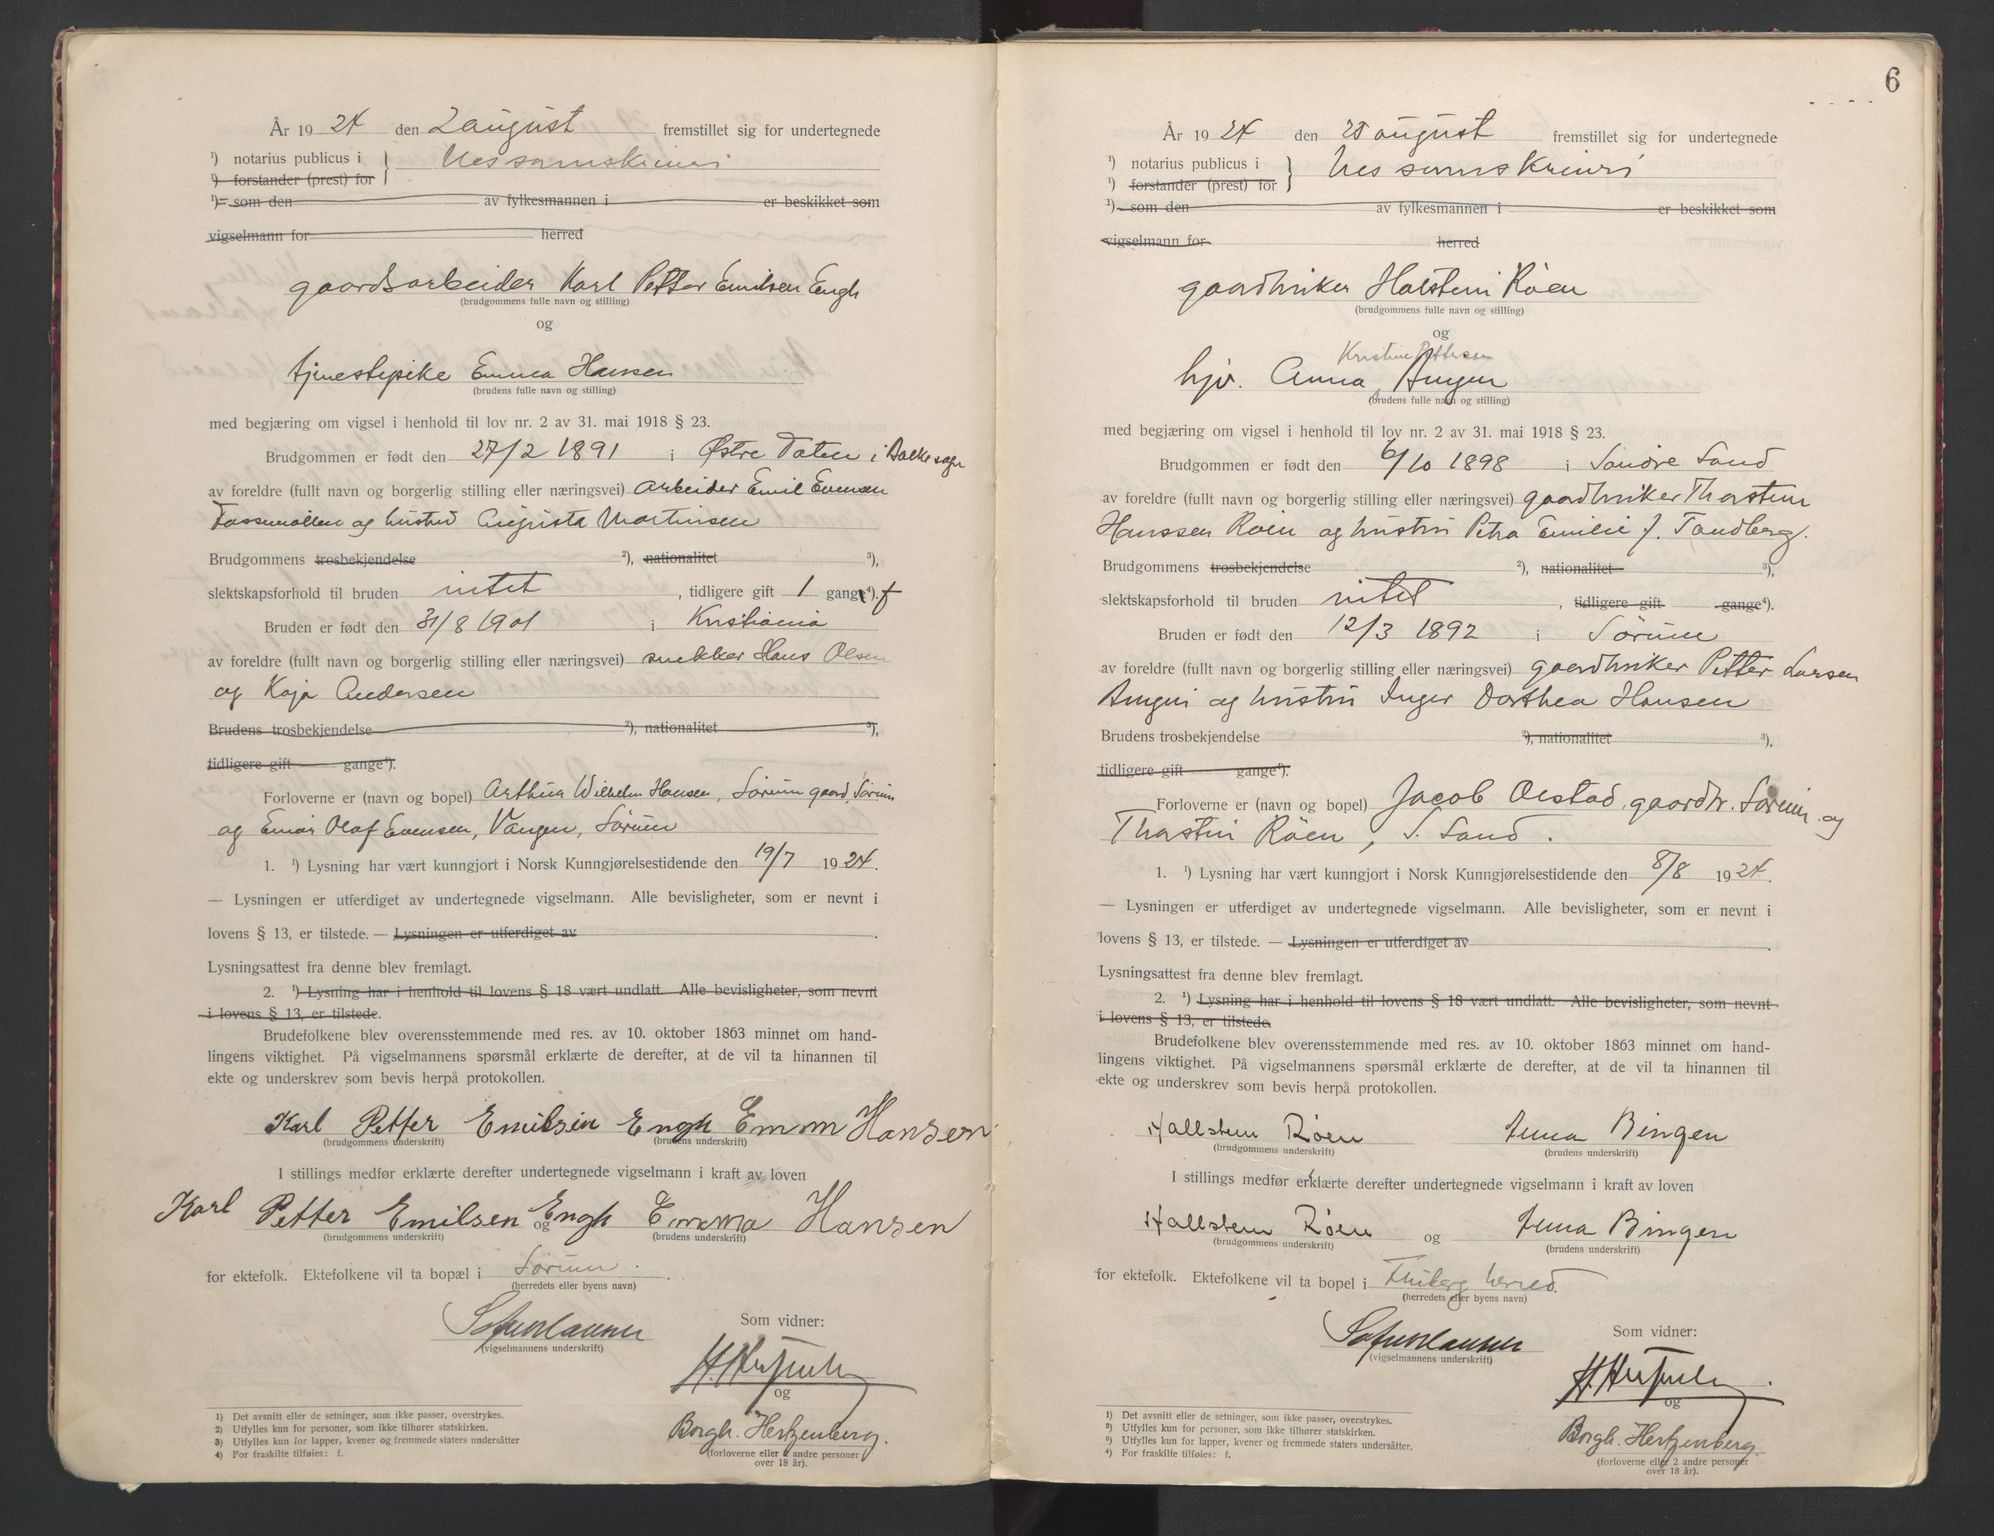 År 1924 den 2 august fremstillet sig for undertegnede
¹) notarius publicus i } Nes sorenskriveri
¹) forstander (prest) for
¹) som den av fylkesmannen i er beskikket som
vigselmann for herred
gaardsarbeider Karl Petter Emilsen Engh
(brudgommens fulle navn og stilling)
og
tjenestepike Emma Hansen
(brudens fulle navn og stilling)
med begjæring om vigsel i henhold til lov nr. 2 av 31. mai 1918 § 23.
Brudgommen er født den 27/2 1891 i Østre Toten i Balke sogn
av foreldre (fullt navn og borgerlig stilling eller næringsvei) arbeider Emil Evensen
og hustru Augusta Martinsen
Brudgommens trosbekjendelse ²), nationalitet ³),
slektskapsforhold til bruden intet, tidligere gift 1 gang⁴). f
Bruden er født den 31/8 1901 i Kristiania
av foreldre (fullt navn og borgerlig stilling eller næringsvei) snekker Hans Olsen
og Kaja Andersen
Brudens trosbekjendelse ²), nationalitet ³),
tidligere gift gange⁴).
Forloverne er (navn og bopel) Arthur Wilhelm Hansen, Sørum gaard, Sørum
og Einar Olaf Evensen, Vangen, Sørum
1. ¹) Lysning har vært kunngjort i Norsk Kunngjørelsestidende den 19/7 1924.
— Lysningen er utferdiget av undertegnede vigselmann. Alle bevisligheter, som er nevnt i
lovens § 13, er tilstede. — Lysningen er utferdiget av .
Lysningsattest fra denne blev fremlagt.
2. ¹) Lysning har i henhold til lovens § 18 vært undlatt. Alle bevisligheter, som nevnt
i lovens § 13, er tilstede.
Brudefolkene blev overensstemmende med res. av 10. oktober 1863 minnet om hand-
lingens viktighet. På vigselmannens spørsmål erklærte de derefter, at de vil ta hinannen til
ekte og underskrev som bevis herpå protokollen.
Karl Petter Emilsen Engh Emma Hansen
(brudgommens underskrift) (brudens underskrift)
I stillings medfør erklærte derefter undertegnede vigselmann i kraft av loven
Karl Petter Emilsen Engh og Emma Hansen
(brudgommens underskrift) (brudens underskrift)
for ektefolk. Ektefolkene vil ta bopæl i Sørum.
(herredets eller byens navn)
(vigselmannens underskrift)
Som vidner:
og
Borgh. Hertzenberg.
(forloverne eller 2 andre personer
over 18 år).
1) Det avsnitt eller de setninger, som ikke passer, overstrykes.
2) Utfylles kun for personer, som ikke tilhører statskirken.
3) Utfylles kun for lapper, kvener og fremmede staters undersåtter
4) For fraskilte tilføies: f.
6
År 1924 den 25 august fremstillet sig for undertegnede
¹) notarius publicus i } Nes sorenskriveri
¹) forstander (prest) for
¹) som den av fylkesmannen i er beskikket som
vigselmann for herred
gaardbruker Halstein Røen
(brudgommens fulle navn og stilling)
og
Kristine Pettersen
hjv. Anna Bingen
(brudens fulle navn og stilling)
med begjæring om vigsel i henhold til lov nr. 2 av 31. mai 1918 § 23.
Brudgommen er født den 6/10 1898 i Søndre Sand
av foreldre (fullt navn og borgerlig stilling eller næringsvei) gaardbruker Thorstein
Hanssen Røen og hustru Petra Emilie f. Tandberg.
Brudgommens trosbekjendelse ²), nationalitet ³),
slektskapsforhold til bruden intet, tidligere gift gange⁴).
Bruden er født den 12/3 1892 i Sørum
av foreldre (fullt navn og borgerlig stilling eller næringsvei) gaardbruker Petter Larsen
Bingen og hustru Inger Dorthea Hansen
Brudens trosbekjendelse ²), nationalitet ³),
tidligere gift gange⁴).
Forloverne er (navn og bopel) Jacob Orstad, gaardbr. Sørum og
Thorstein Røen, S. Sand.
1. ¹) Lysning har vært kunngjort i Norsk Kunngjørelsestidende den 8/8 1924.
— Lysningen er utferdiget av undertegnede vigselmann. Alle bevisligheter, som er nevnt i
lovens § 13, er tilstede. — Lysningen er utferdiget av .
Lysningsattest fra denne blev fremlagt.
2. ¹) Lysning har i henhold til lovens § 18 vært undlatt. Alle bevisligheter, som nevnt
i lovens § 13, er tilstede.
Brudefolkene blev overensstemmende med res. av 10. oktober 1863 minnet om hand-
lingens viktighet. På vigselmannens spørsmål erklærte de derefter, at de vil ta hinannen til
ekte og underskrev som bevis herpå protokollen.
Hallstein Røen Anna Bingen
(brudgommens underskrift) (brudens underskrift)
I stillings medfør erklærte derefter undertegnede vigselmann i kraft av loven
Hallstein Røen og Anna Bingen
(brudgommens underskrift) (brudens underskrift)
for ektefolk. Ektefolkene vil ta bopel i herred.
(herredets eller byens navn)
(vigselmannens underskrift)
Som vidner:
og
Borgh. Hertzenberg.
(forloverne eller 2 andre personer
over 18 år).
1) Det avsnitt eller de setninger, som ikke passer, overstrykes.
2) Utfylles kun for personer, som ikke tilhører statskirken.
3) Utfylles kun for lapper, kvener og fremmede staters undersåtter.
4) For fraskilte tilføies: f.